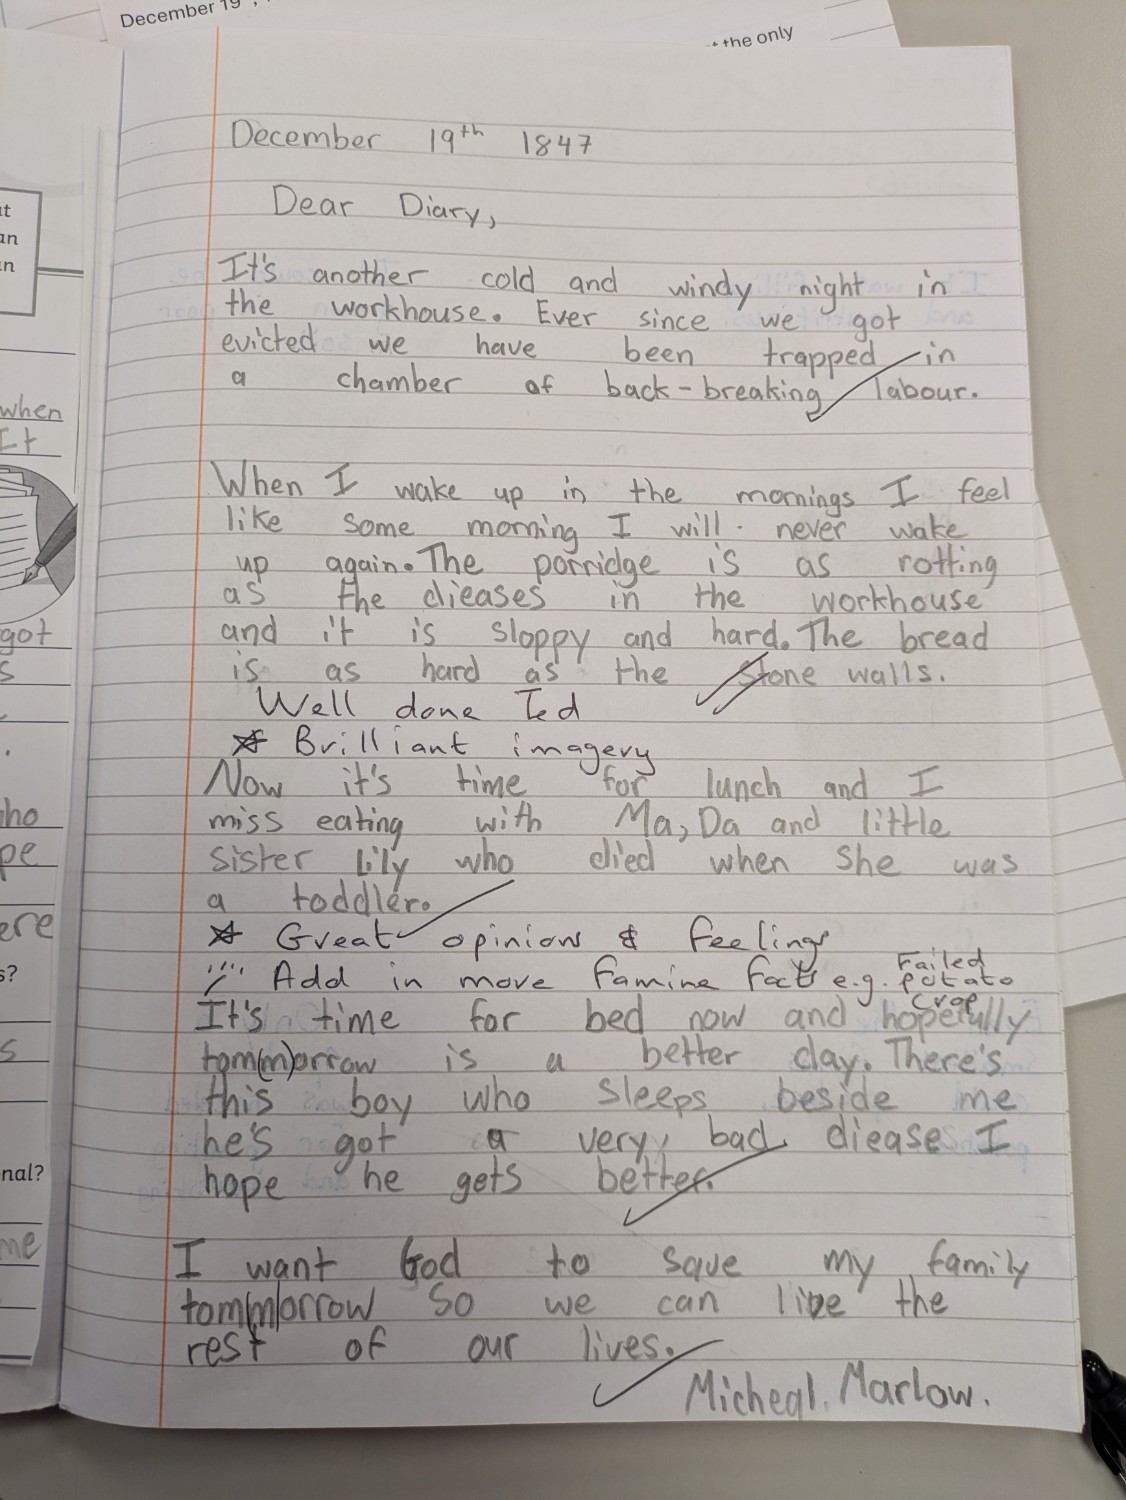 December 19
the only
December 19th 1847
Dear Diary,
It's another cold and windy night in
the workhouse. Ever since we got
evicted we have been trapped in
a chamber of back-breaking labour.
When I wake up in the mornings I feel
like some morning I will never wake
up again. The porridge is as rotting
as the dieases in the workhouse
and it is sloppy and hard. The bread
is as hard as the stone walls.
Well done Ted
Brilliant imagery
Now it's time for lunch and I
miss eating with Ma, Da and little
sister lily who died when she was
a toddler.
Great opinions & feelings
Add in more famine facts e.g. Failed
potato
crop
It's time for bed now and hopefully
tom(m)orrow is a better day. There's
this boy who sleeps beside me
he's got a very, bad diease I
hope he gets better.
I want God to save my family
tom(m)orrow so we can live the
rest of our lives.
Micheal. Marlow.
when
It
got
s
ho
pe
ere
s?
s
nal?
me